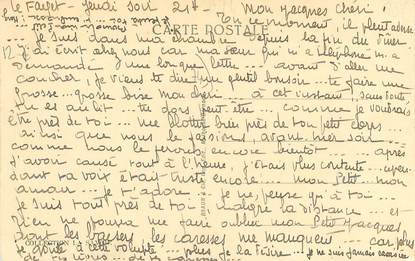 Le Fayet - Jeudi soir 21h - Mon Jacques chéri!
En ce moment, il pleut à verse
CARTE POSTALE
... Je suis dans ma chambre depuis la fin du dîner
J'ai écrit chez nous car ma sœur qui m'a téléphoné m'a
demandé une longue lettre ... avant d'aller me
coucher, je viens te dire un gentil bonsoir ... te faire une
grosse ... grosse bise mon chéri ... à cet instant, sans doute
tu es au lit ... tu dors peut être ... comme je voudrais
être près de toi ... me blottir bien près de ton petit corps ...
ainsi que nous le faisions, avant hier soir ...
comme nous le ferons encore bientôt ... après
t'avoir causé tout à l'heure, j'étais plus contente ...
dont ta voix était triste encore ... mon Petit ... mon
amour ... je t'adore ... je ne pense qu'à toi ...
je suis tout près de toi ... malgré la distance ... et
rien ne pourra me faire oublier mon Petit Jacques
dont les baisers, les caresses me manquent ... car plus
je goûte à cette volupté ... plus je la désire ... je ne suis jamais
COLLECTION